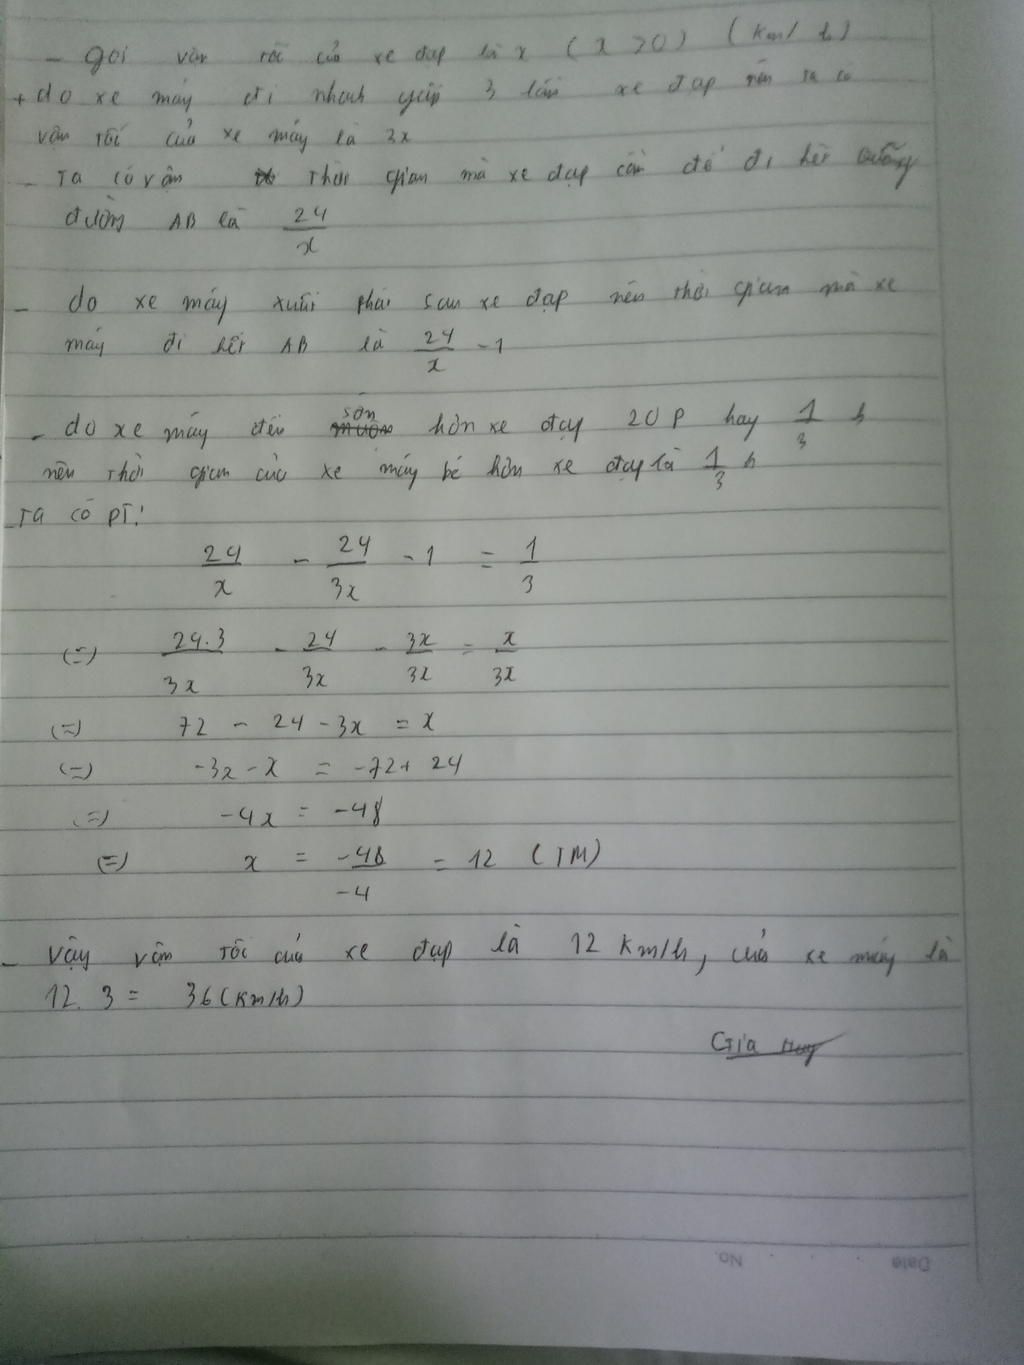 - gọi vận tốc của xe đạp là x ( x > 0 ) ( km/h )
+ do xe máy đi nhanh gấp 3 lần xe đạp nên ta có
vận tốc của xe máy là 3x
- Ta có vận thời gian mà xe đạp cần để đi hết quãng
đường AB là 24/x
- do xe máy xuất phát sau xe đạp nên thời gian mà xe
máy đi hết AB là 24/x - 1
- do xe máy đến sớm hơn xe đạp 20 P hay 1/3 h
nên thời gian của xe máy bé hơn xe đạp là 1/3 h
Ta có PT:
24/x - 24/3x - 1 = 1/3
(=) 24.3/3x - 24/3x - 3x/3x = x/3x
(=) 72 - 24 - 3x = x
(=) -3x - x = -72 + 24
(=) -4x = -48
(=) x = -48/-4 = 12 (TM)
- Vậy vận tốc của xe đạp là 12 km/h, của xe máy là
12. 3 = 36 (km/h)
Gia Huy
No.
Date